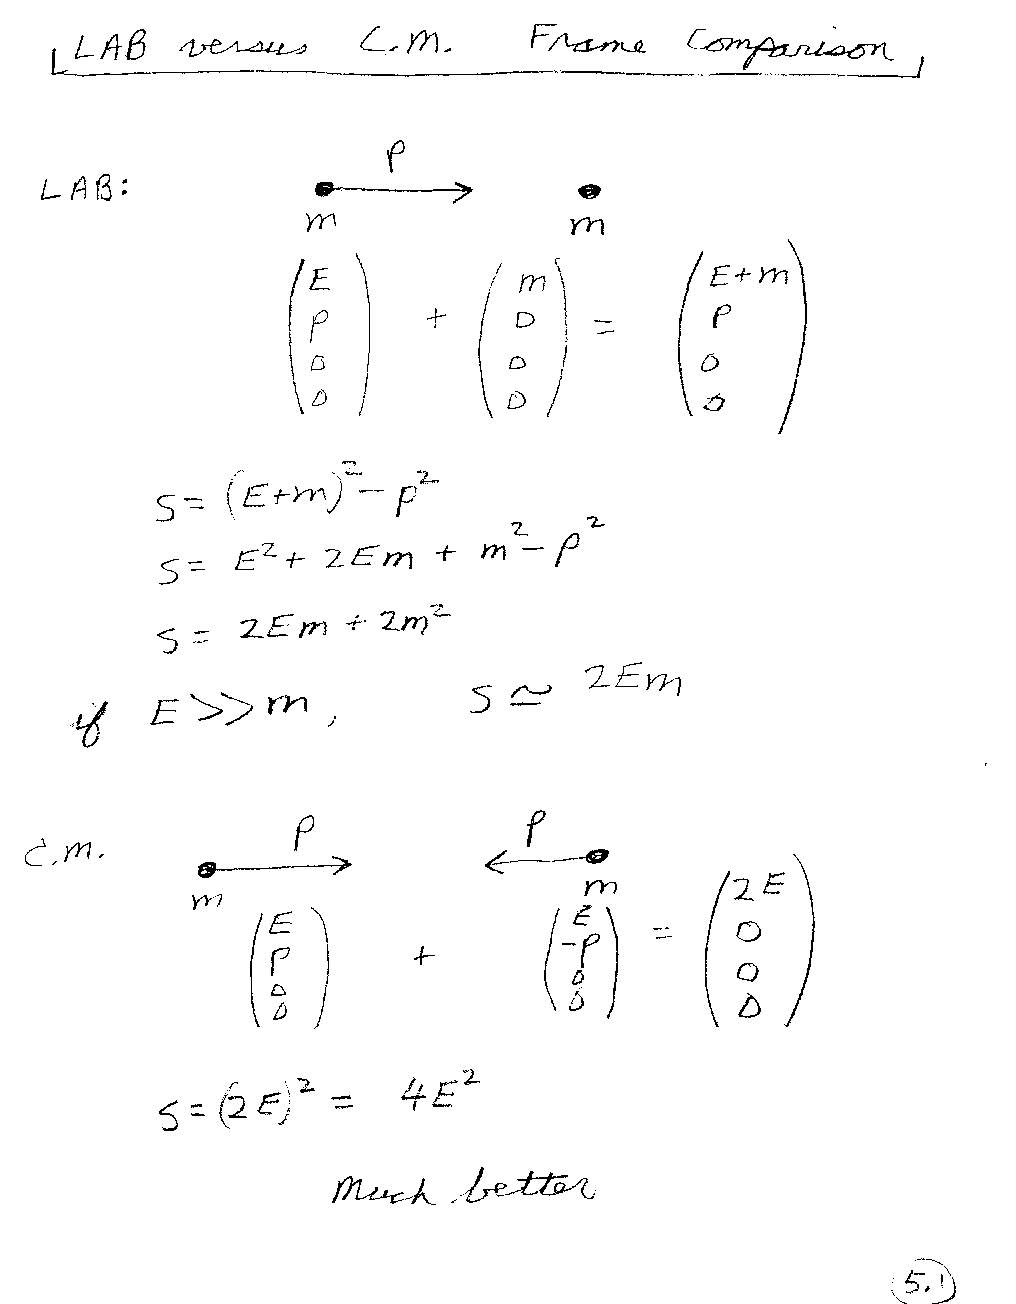 LAB versus C.M. Frame Comparison
P
LAB:
m m
(E P 0 0) + (m 0 0 0) = (E+m P 0 0)
S = (E+m)² - p²
S = E² + 2Em + m² - p²
S = 2Em + 2m²
if E >> m, S ≃ 2Em
P P
C.M.
m m
(E P 0 0) + (E -P 0 0) = (2E 0 0 0)
S = (2E)² = 4E²
Much better
5.1